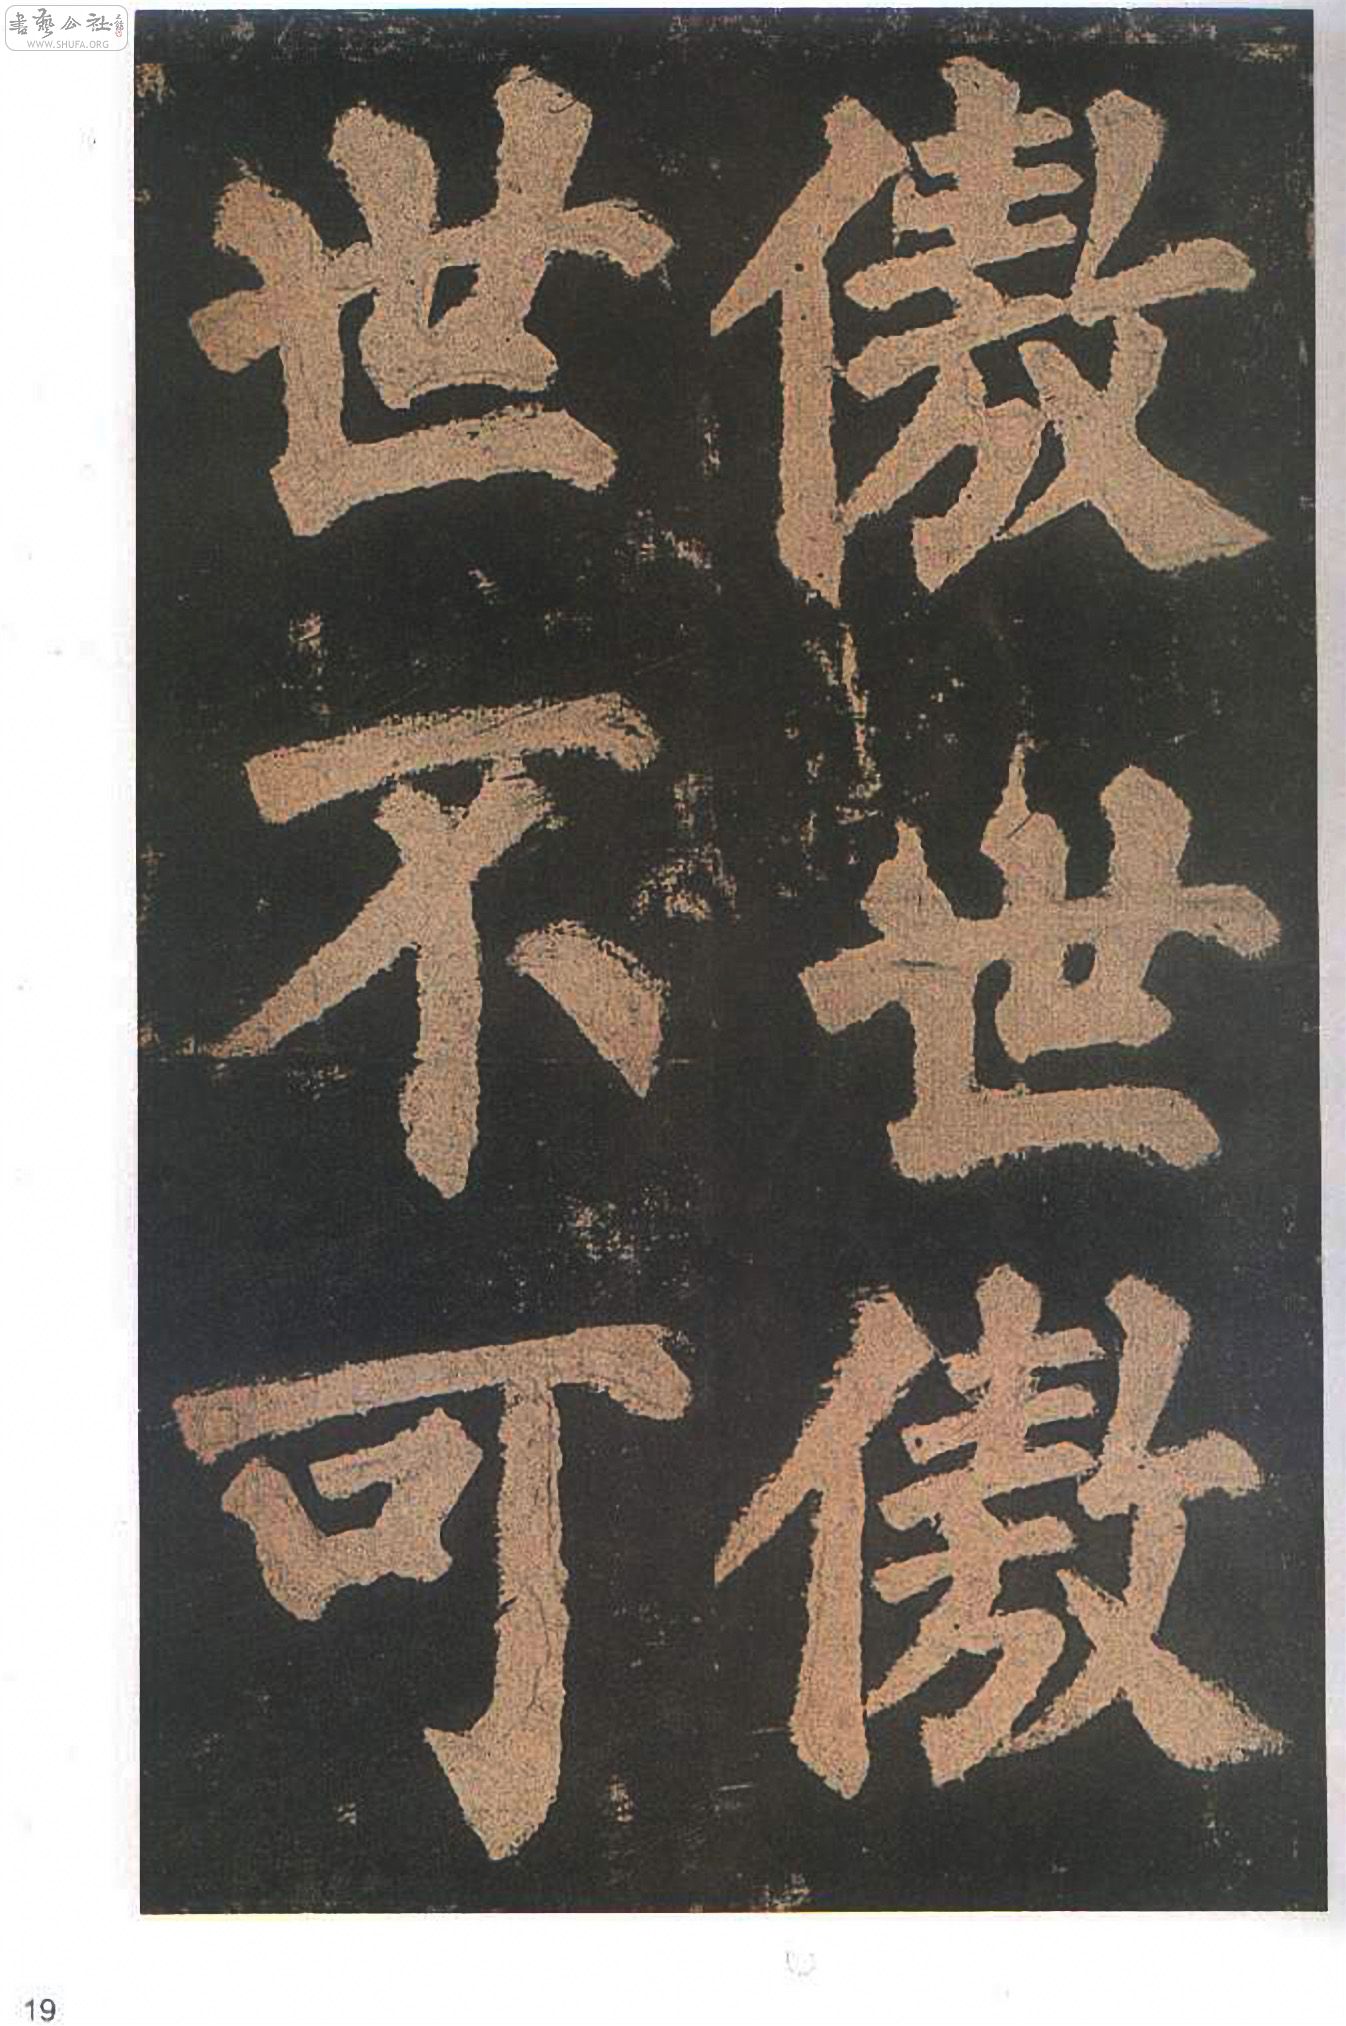 傲世傲
世不可
書藝公社
WWW.SHUFA.ORG
19